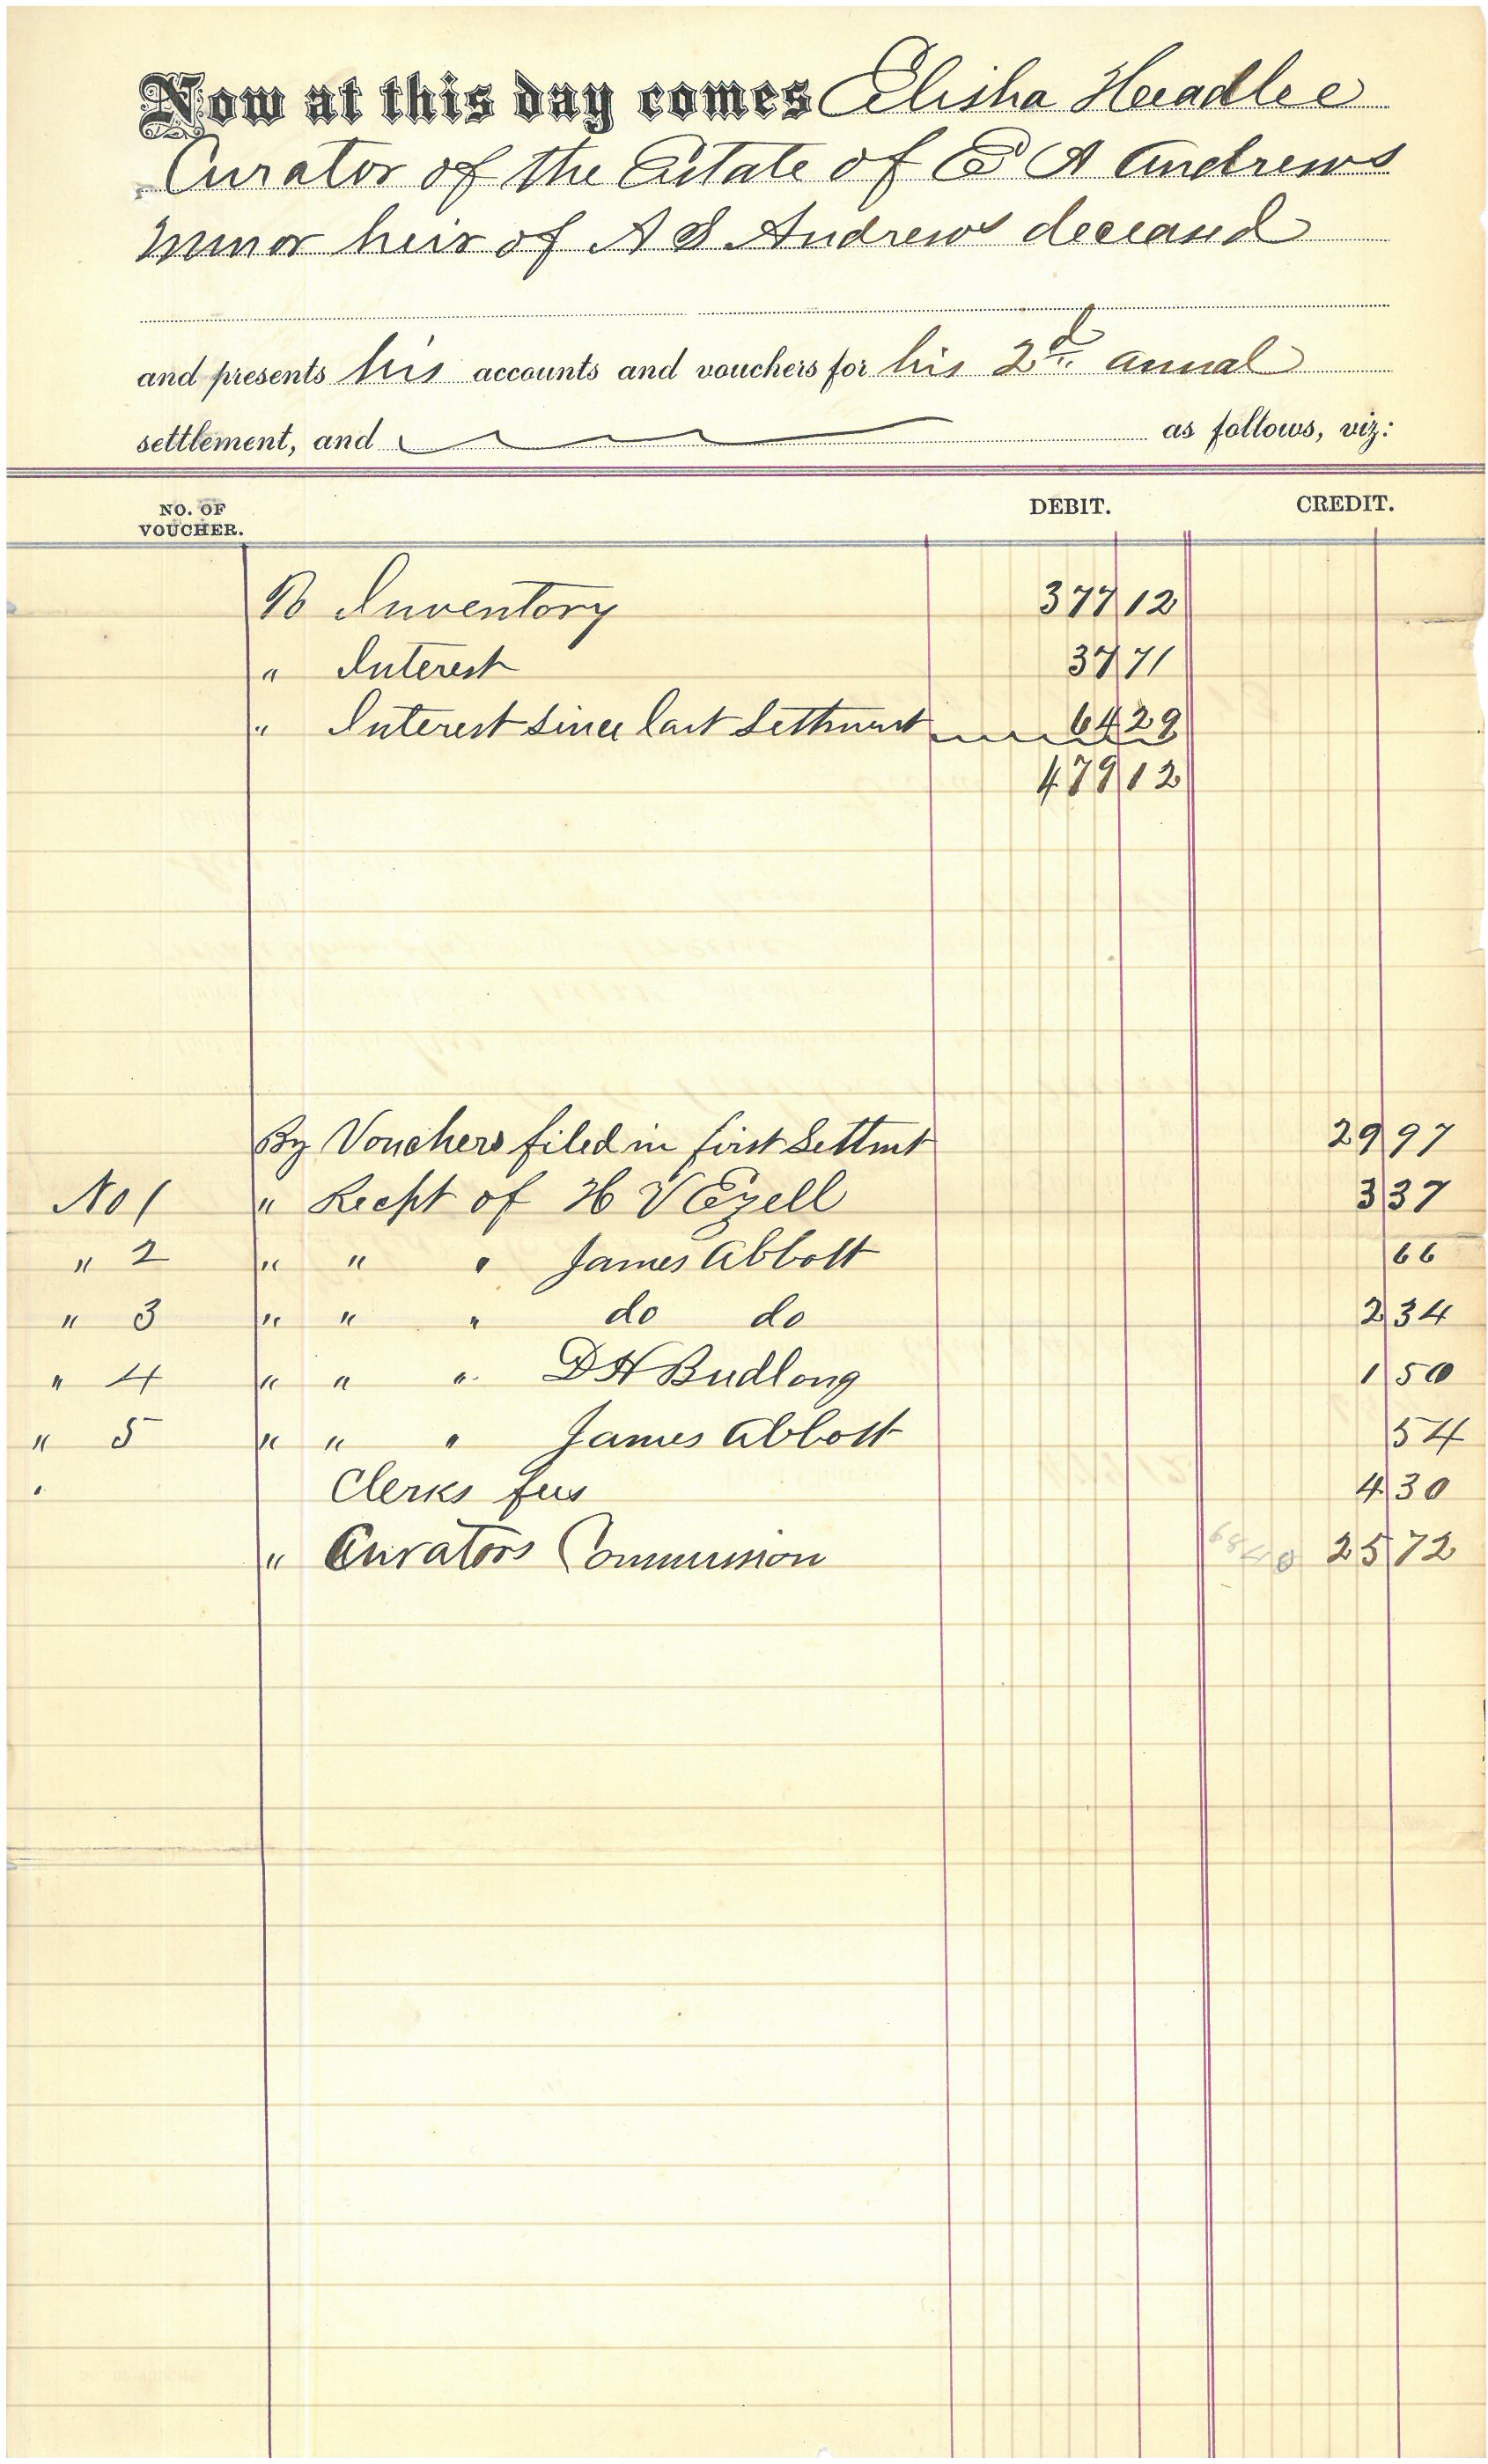 Now at this day comes Elisha Headlee
Curator of the Estate of E A Andrews
minor heir of A S Andrews deceased
and presents his accounts and vouchers for his 2d annual
settlement, and as follows, viz:
NO. OF VOUCHER. DEBIT. CREDIT.
To Inventory 377 12
" Interest 37 71
" Interest Since last Settlment 64 29
479 12
By Vouchers filed in first Settmt 29 97
No 1 " Recpt of H V Ezell 3 37
" 2 " " " James Abbott 66
" 3 " " " do do 2 34
" 4 " " " D H Budlong 1 50
" 5 " " " James Abbott 54
" Clerks fees 4 30
" Curators Commission 25 72